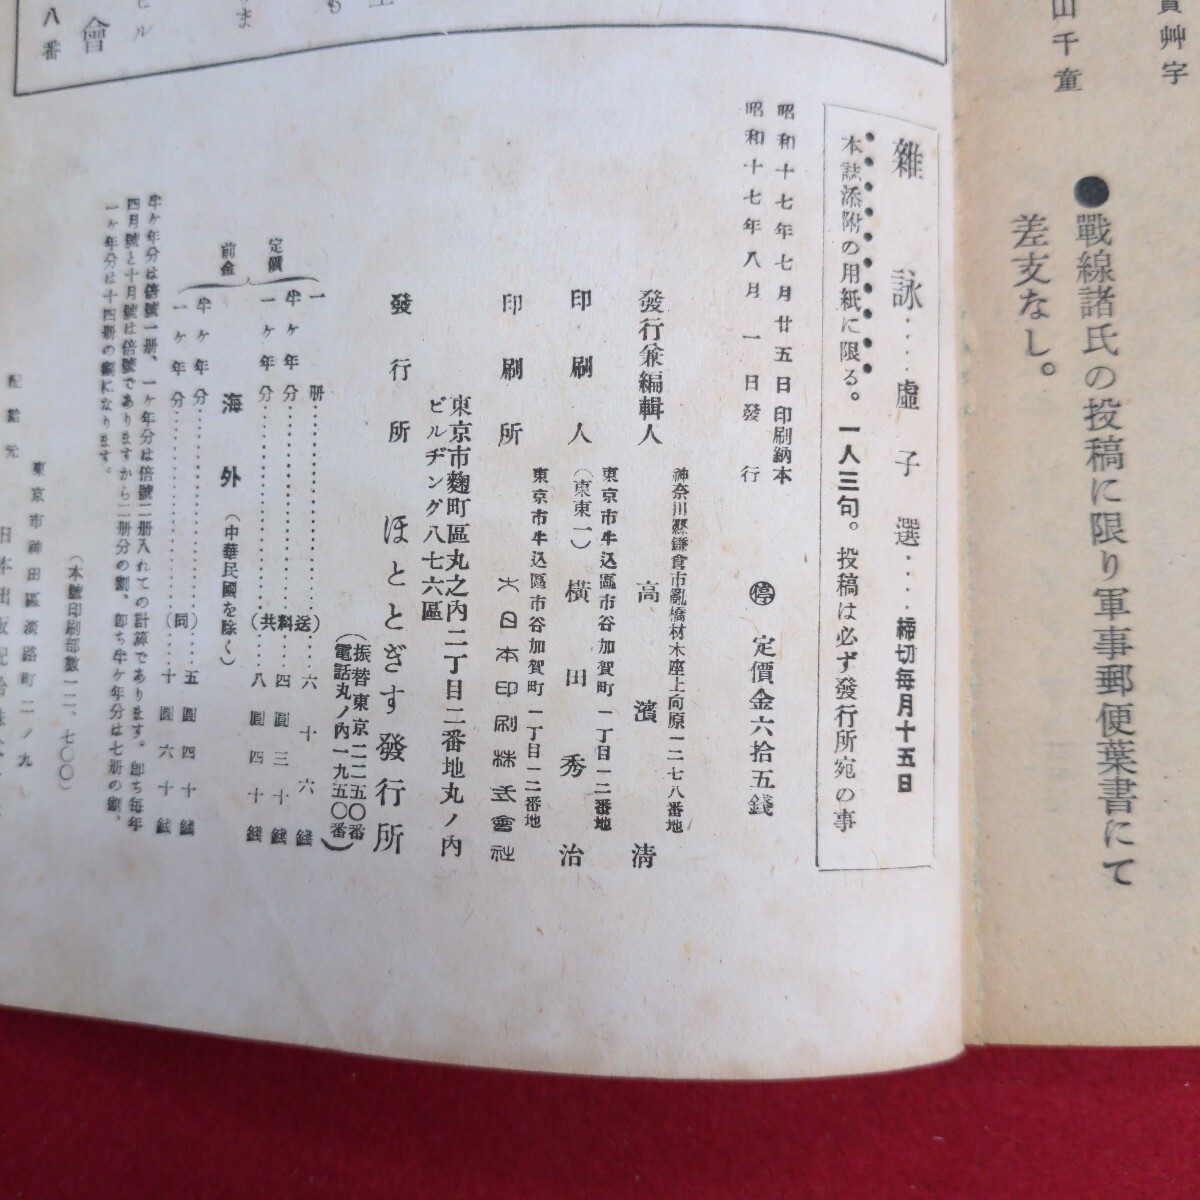 山千童
●戰線諸氏の投稿に限り軍事郵便葉書にて
差支なし。
雜詠‥‥虛子選‥‥締切每月十五日
本誌添附の用紙に限る。一人三句。投稿は必ず發行所宛の事
昭和十七年七月廿五日印刷納本
昭和十七年八月一日發行
㊡定價金六拾五錢
神奈川縣鎌倉市亂橋材木座上向原一二七八番地
發行兼編輯人 高濱清
東京市牛込區市谷加賀町一丁目一二番地
印刷人 (東東一) 橫田秀治
東京市牛込區市谷加賀町一丁目一二番地
印刷所 大日本印刷株式會社
東京市麴町區丸之內二丁目二番地丸ノ內
ビルヂング八七六區
發行所 ほととぎす發行所
(振替東京一二五〇番
電話丸ノ內一九五〇番)
定價
前金
一册‥‥‥(送‥六十六錢
半ケ年分‥‥‥料‥四圓三十錢
一ケ年分‥‥‥共)‥八圓四十錢
海外(中華民國を除く)
半ケ年分‥‥‥(同)‥五圓四十錢
一ケ年分‥‥‥十圓六十錢
半ケ年分は倍號一册、一ケ年分は倍號二册入れての計算であります。卽ち每年
四月號と十月號は倍號でありますから二册分の割、卽ち半ケ年分は七册の割、
一ケ年分は十四册の割になります。
(本號印刷部數一二、七〇〇)
東京市神田區淡路町二ノ九
配給元 日本出版配給株
ビル
會
八番